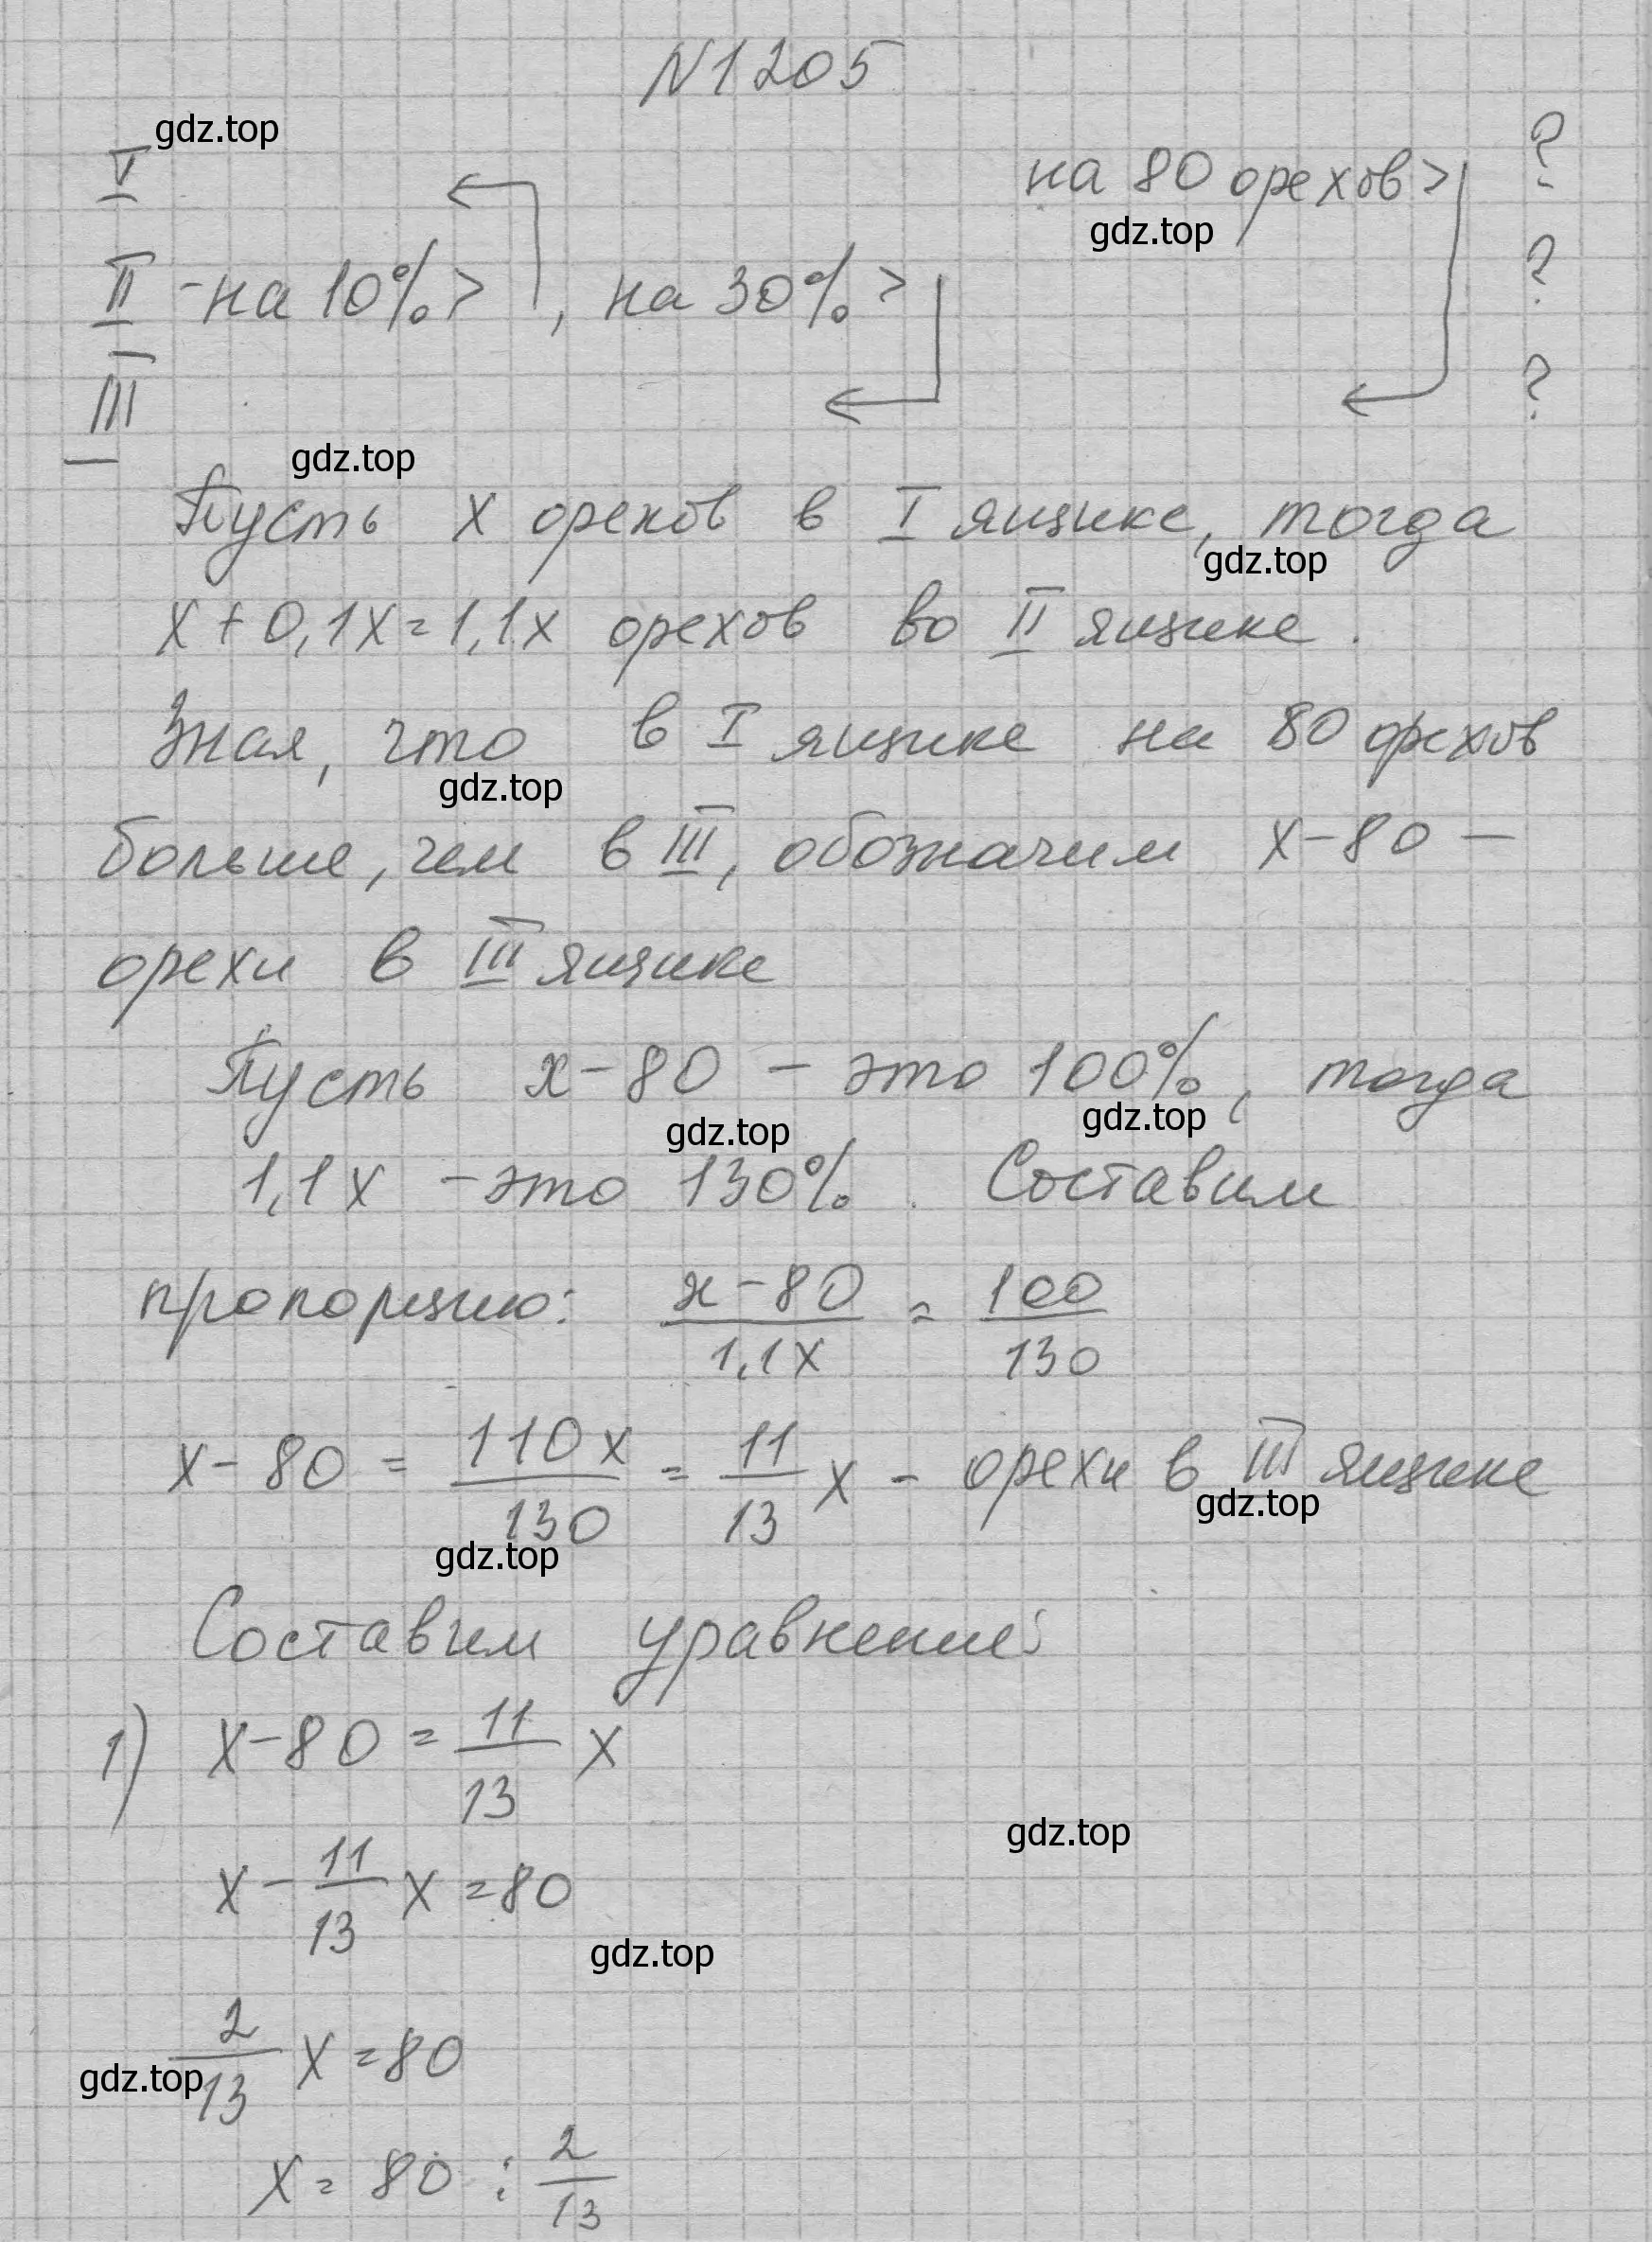 N1205
gdz.top
I на 80 орехов > ?
gdz.top
II - на 10% > , на 30% > ?
III ?
gdz.top
Пусть x орехов в I ящике, тогда
gdz.top
x + 0,1x = 1,1x орехов во II ящике.
Зная, что в I ящике на 80 орехов
gdz.top
больше, чем в III, обозначим x - 80 —
орехи в III ящике
Пусть x - 80 - это 100%, тогда
gdz.top gdz.top
1,1x - это 130%. Составим
пропорцию: \frac{x-80}{1,1x} = \frac{100}{130}
x - 80 = \frac{110x}{130} = \frac{11}{13} x - орехи в III ящике
gdz.top
gdz.top
Составим уравнение:
1) x - 80 = \frac{11}{13} x
gdz.top
x - \frac{11}{13} x = 80
gdz.top
\frac{2}{13} x = 80
gdz.top
x = 80 : \frac{2}{13}